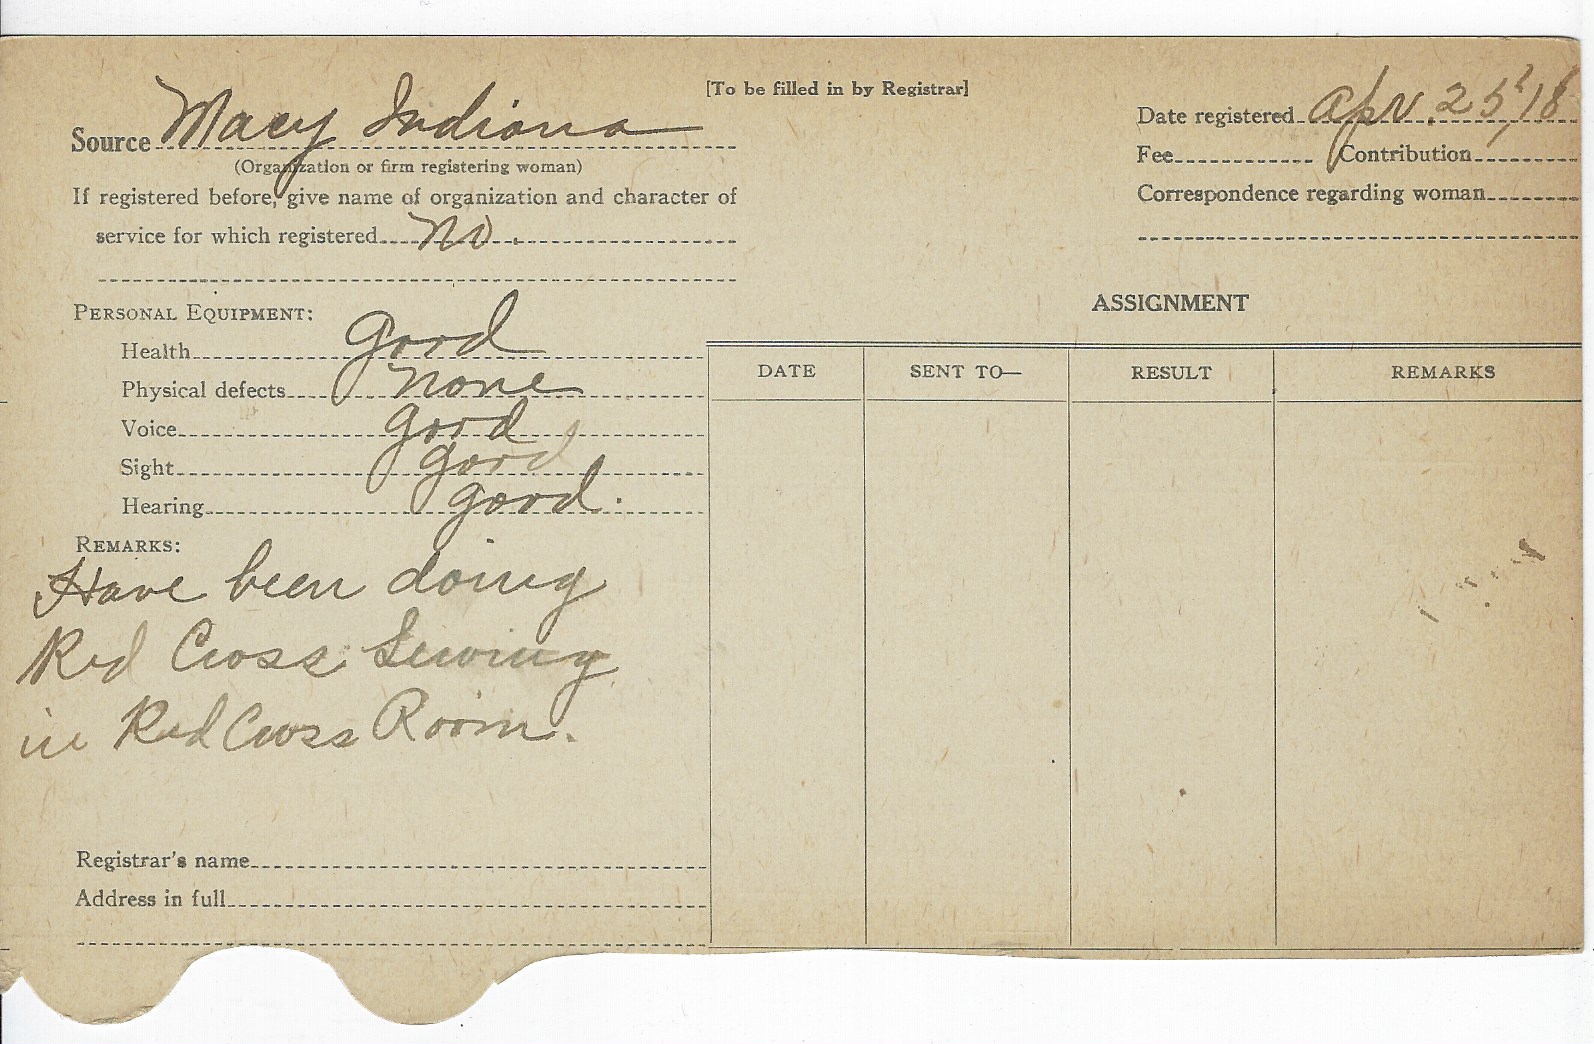 [To be filled in by Registrar]
Source Macy Indiana
(Organization or firm registering woman)
If registered before, give name of organization and character of
service for which registered No.
PERSONAL EQUIPMENT:
Health good
Physical defects none
Voice good
Sight good
Hearing good.
REMARKS:
Have been doing
Red Cross Sewing
in Red Cross Room.
Registrar's name
Address in full
Date registered Apr. 25, '18
Fee Contribution
Correspondence regarding woman
ASSIGNMENT
DATE SENT TO— RESULT REMARKS